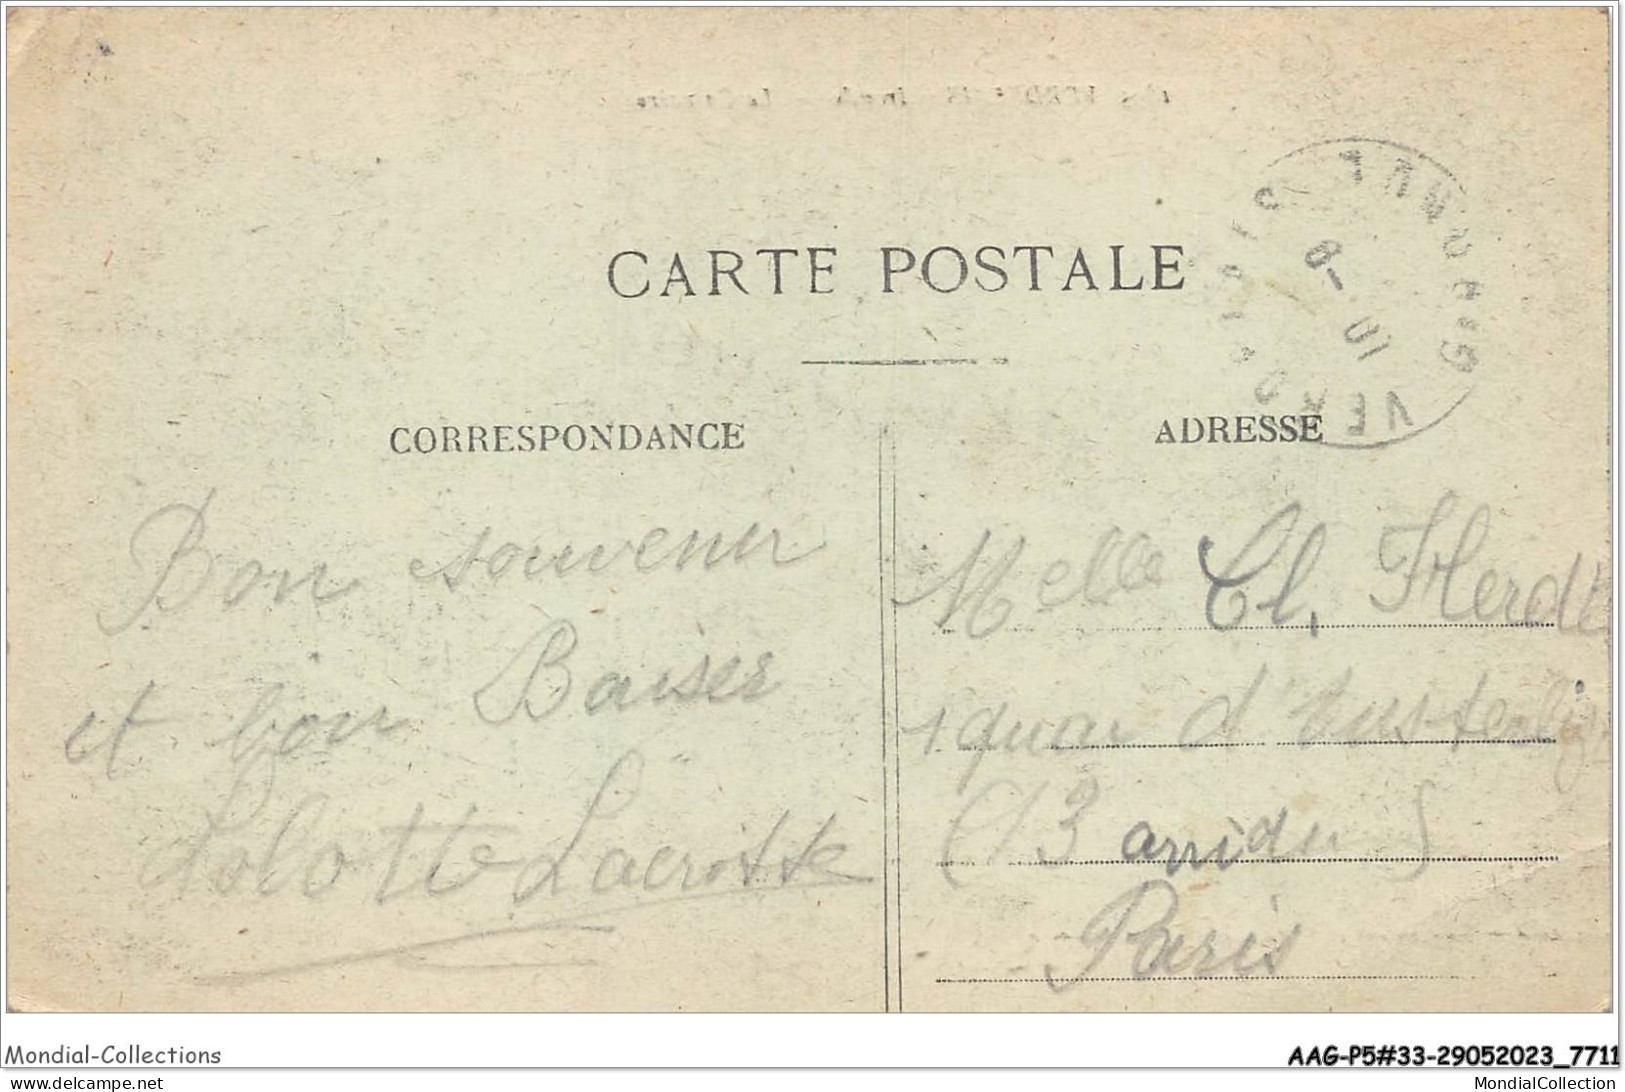 CARTE POSTALE
CORRESPONDANCE
ADRESSE
Bon souvenir
et bon Baiser
Lolotte Lacrotte
Melle Cl, Herdt
1 quai d'Austerlitz
(13 arridu)
Paris
Mondial-Collections
AAG-P5#33-29052023_7711
www.delcampe.net
MondialCollection